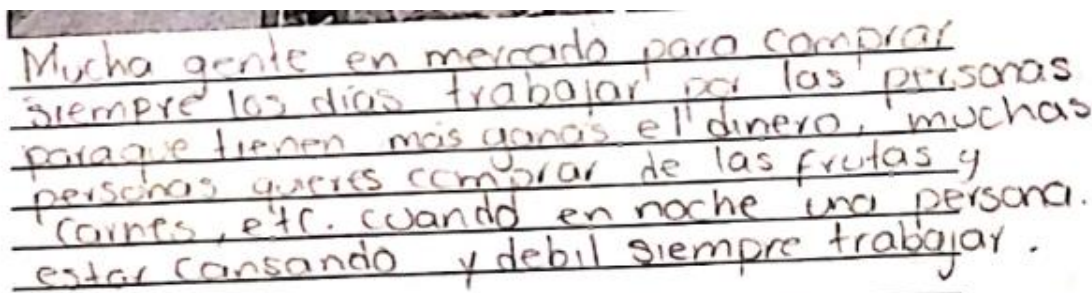 Mucha gente en mercado para comprar
siempre los dias trabajar por las personas
paraque tienen más ganas el dinero, muchas
personas quieres comprar de las frutas y
carnes, etc. cuando en noche una persona.
estar cansando y debil siempre trabajar.